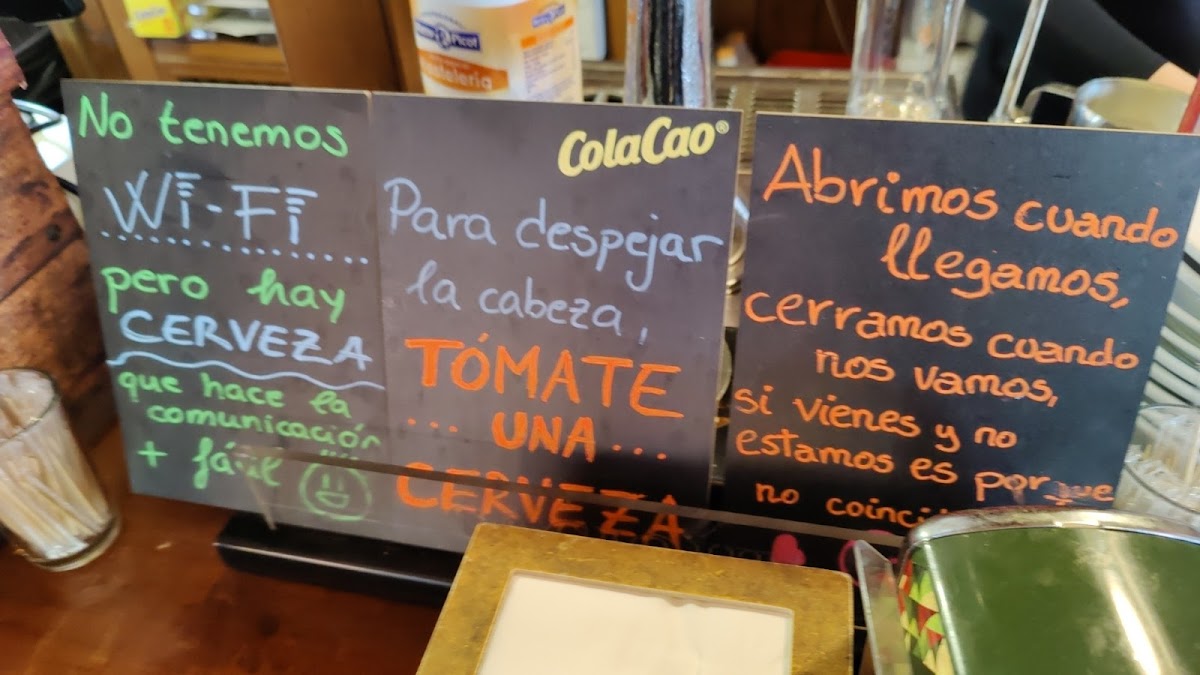 No tenemos
WiFi
pero hay
CERVEZA
que hace la
comunicación
+ fácil
ColaCao®
Para despejar
la cabeza,
TÓMATE
... UNA ...
CERVEZA
Abrimos cuando
llegamos,
cerramos cuando
nos vamos,
si vienes y no
estamos es porque
no
Picot